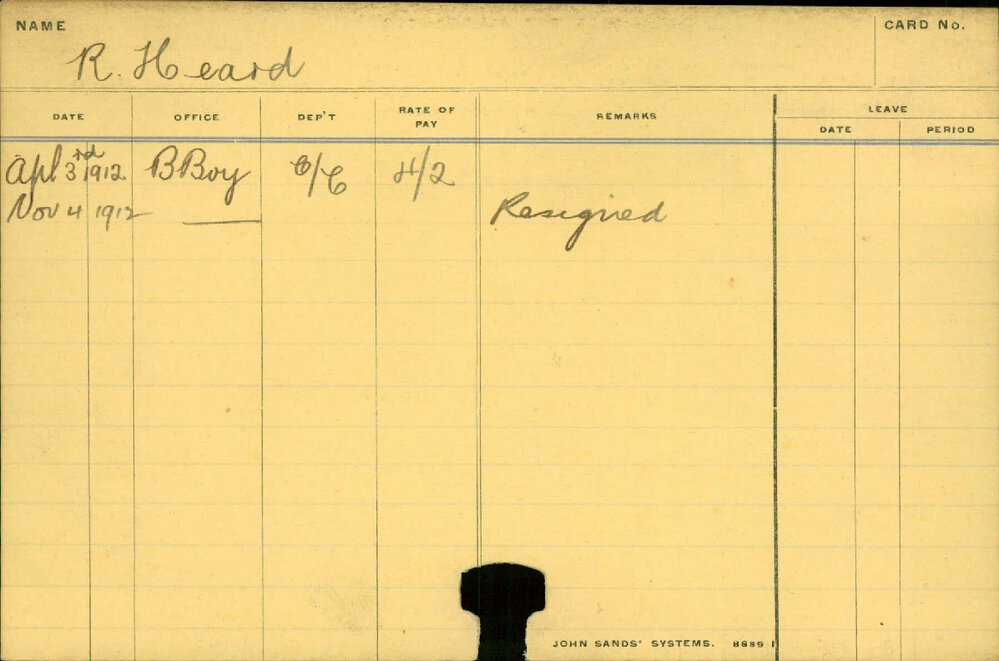 NAME
CARD No.
R. Heard
DATE OFFICE DEP'T RATE OF PAY REMARKS LEAVE
DATE PERIOD
Apl 3rd 1912 BBoy 4/2
Nov 4 1912 —— Resigned
JOHN SANDS' SYSTEMS. 8689 1